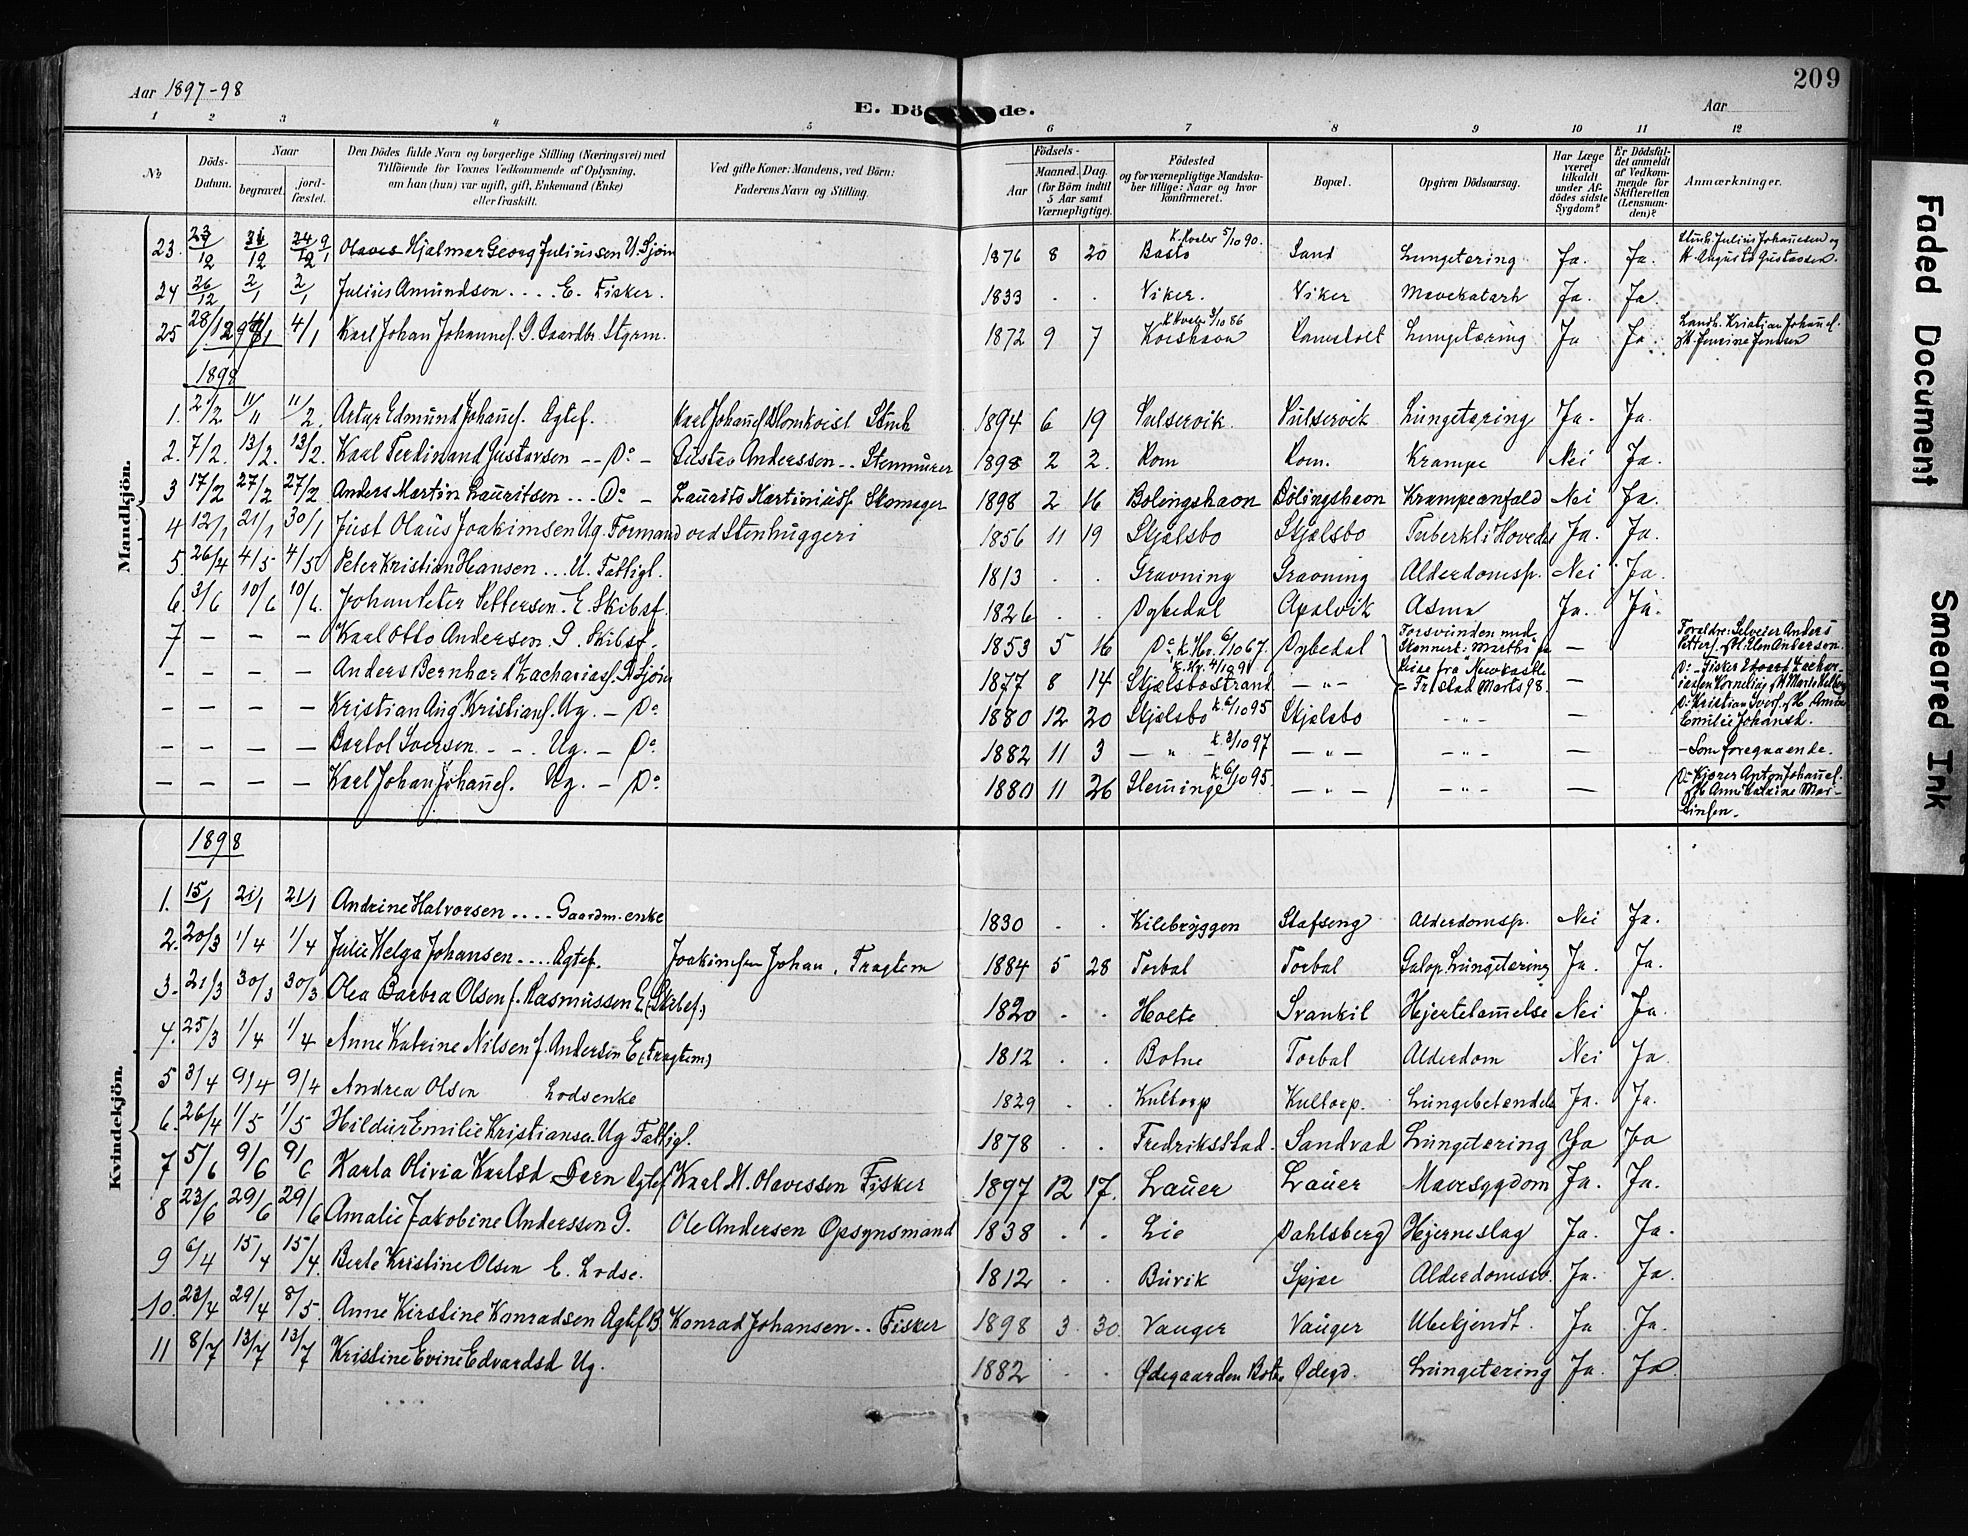 Aar 1897-98
E. Dö de.
Aar
209
1 2 3 4 5 6 7 8 9 10 11 12
No
Döds-Datum.
Naar
begravet.
jordfæstet.
Den Dödes fulde Navn og borgerlige Stilling (Næringsvei) med
Tilföiende for Voxnes Vedkommende af Oplysning,
om han (hun) var ugift, gift, Enkemand (Enke)
eller fraskilt.
Ved gifte Koner: Mandens, ved Börn:
Faderens Navn og Stilling.
Födsels-
Aar
Maaned. Dag.
(for Börn indtil
5 Aar samt
Værnepligtige).
Födested
og for værnepligtige Mandskaber tillige: Naar og hvor
konfirmeret.
Bopæl.
Opgiven Dödsaarsag.
Har Læge
været
tilkaldt
under Afdödes sidste
Sygdom?
Er Dödsfaldet anmeldt
af Vedkommende for
Skifteretten
(Lensmanden)?
Anmærkninger.
Mandkjön.
23 23/12 31/12 24/12 9/1 Olaves Hjalmer Georg Juliussen U. Sjöm 1876 8 20 K. Hvaler 5/10 90. Basto Sand Lungetæring Ja. Ja. Stmh. Julius Johannesen og H. Augusta Gustavsen.
24 26/12 2/1 2/1 Julius Amundsen .... E. Fisker. 1833 . . Viker. Viker Mavekatarh Ja. Ja.
25 28/12 97 4/1 4/1 Karl Johan Johannes. G. Gaardbr. Styrm. 1872 9 7 K. Hvaler 3/10 86 Korshavn Ramsholt Lungetæring Ja Ja. Landh. Kristian Johanes. & H. Jensine Jensen
1898
1. 2/2 11/11 11/2. Artur Edmund Johanes. Ægtef. Karl Johanes Blomkvist Stmh 1894 6 19 Pulservik. Pulservik Lungetæring Ja. Ja.
2. 7/2. 13/2. 13/2. Karl Ferdinand Gustavsen -- Do - Gustav Anderssen -- Stenmurer 1898 2 2. Rom Rom. Krampe Nei Ja.
3 17/2 27/2 27/2 Anders Martin Lauritsen ... Do - Laurits Martiniusf. Skomager 1898 2 16 Bølingshavn Bølingshavn Krampeanfald Nei Ja.
4 12/1 21/1 30/1 Just Olaus Joakimsen Ug. Formand ved Stenhuggeri 1856 11 19 Skjælsbo Skjælsbo Tuberkl i Hovedet Ja. Ja.
5. 26/4 4/5 4/5 Peter Kristian Hansen ... U. Fattigl. 1813 . . Gravning Gravning Alderdomsp. Nei Ja.
6. 3/6 10/6 10/6. Johan Peter Pettersen. E. Skibsf. 1826 . . Dybedal Apalvik Asma Ja. Ja.
7 - - - Karl Otto Andersen. G. Skibsf. 1853 5 16 Do. K. Hv. 6/10 67. Dybedal Forsvunden med Skonnert: Marthe paa Reise fra "Newkastle - Fr.stad Marts 98. - Foreldre: Selveier Anders Petters. & H. Elen Andersen
- - - - Anders Bernhard Zachariasf. G. Sjöm 1877 8 14 K. Hv. 4/10 91 Skjælsbostrand - " - - Do - Fisker Edvard Zachariassen Kornelius & H. Marte Helberg
- - - - Kristian Aug. Kristianf. Ug. - Do 1880 12 20 Skjælsbo K. 6/10 95 Skjælsbo - " - - Do Kristian Iversf. & H. Anne Emilie Johansd.
- - - - Bartol Iversen. - - . Ug. - Do 1882 11 3 - " - K. 3/10 97 - " - - " - - - Som foregaaende.
- - - - Karl Johan Johanesf. Ug. - Do 1880 11 26 Fleminge K. 6/10 95. - " - - " - - Do Kjører Anton Johanesf. & H. Anne Katrine Martinsen.
Kvindekjön.
1898
1. 15/1 21/1 21/1 Andrine Halvorsen .... Gaardm. enke 1830 . . Kilebryggen Stafseng Alderdomsp. Nei Ja.
2. 20/3 1/4 1/4 Julie Helga Johansen .... Ægtef. Joakimsen Johan. Fragtem 1884 5 28 Torbal Torbal Galop. Lungetæring Ja. Ja.
3. 21/3 30/3 30/3 Olea Barbra Olsen f. Rasmussen E. (Skibsf.) 1820 . . Holte Svankil Hjertelamelse Nei Ja.
4. 25/3 1/4 1/4 Anne Katrine Nilsen f. Andersen E (Fragtem) 1812 . . Botne Torbal Alderdom Nei Ja.
5 3/4 9/4 9/4 Andrea Olsen Lodsenke 1829 . . Kultorp Kultorp. Lungebetændels Ja. Ja.
6. 26/4 1/5 1/5 Hildur Emilie Kristiansen. Ug Fattigl. 1878 . . Fredriksstad. Sandvad Lungetæring Ja Ja
7 5/6 9/6 9/6 Karla Olivia Karlsd Ægtef. Karl M. Olavessen Fisker 1897 12 17. Lauer Lauer Mavesygdom Ja. Ja.
8 23/6 29/6 29/6 Amalie Jakobine Anderssen G. Ole Andersen Opsynsmand 1838 . . Lie Dahlsberg Hjerneslag Ja. Ja.
9 6/4 15/4 15/4. Berte Kristine Olsen E. Lodse. 1812 . . Buvik Spjær Alderdomssv. Ja. Ja.
10. 23/4 29/4 8/5. Anne Kirstine Konradsen Ægtef B Konrad Johansen .. Fisker 1898 3 30 Vauger Vauger Ubekjendt. Ja Ja.
11 8/7 13/7 13/7 Kristine Evine Edvardsd Ug. 1882 . . Ødegaarden Botne Ødegd. Lungetæring Ja. Ja.
Faded Document
Smeared Ink